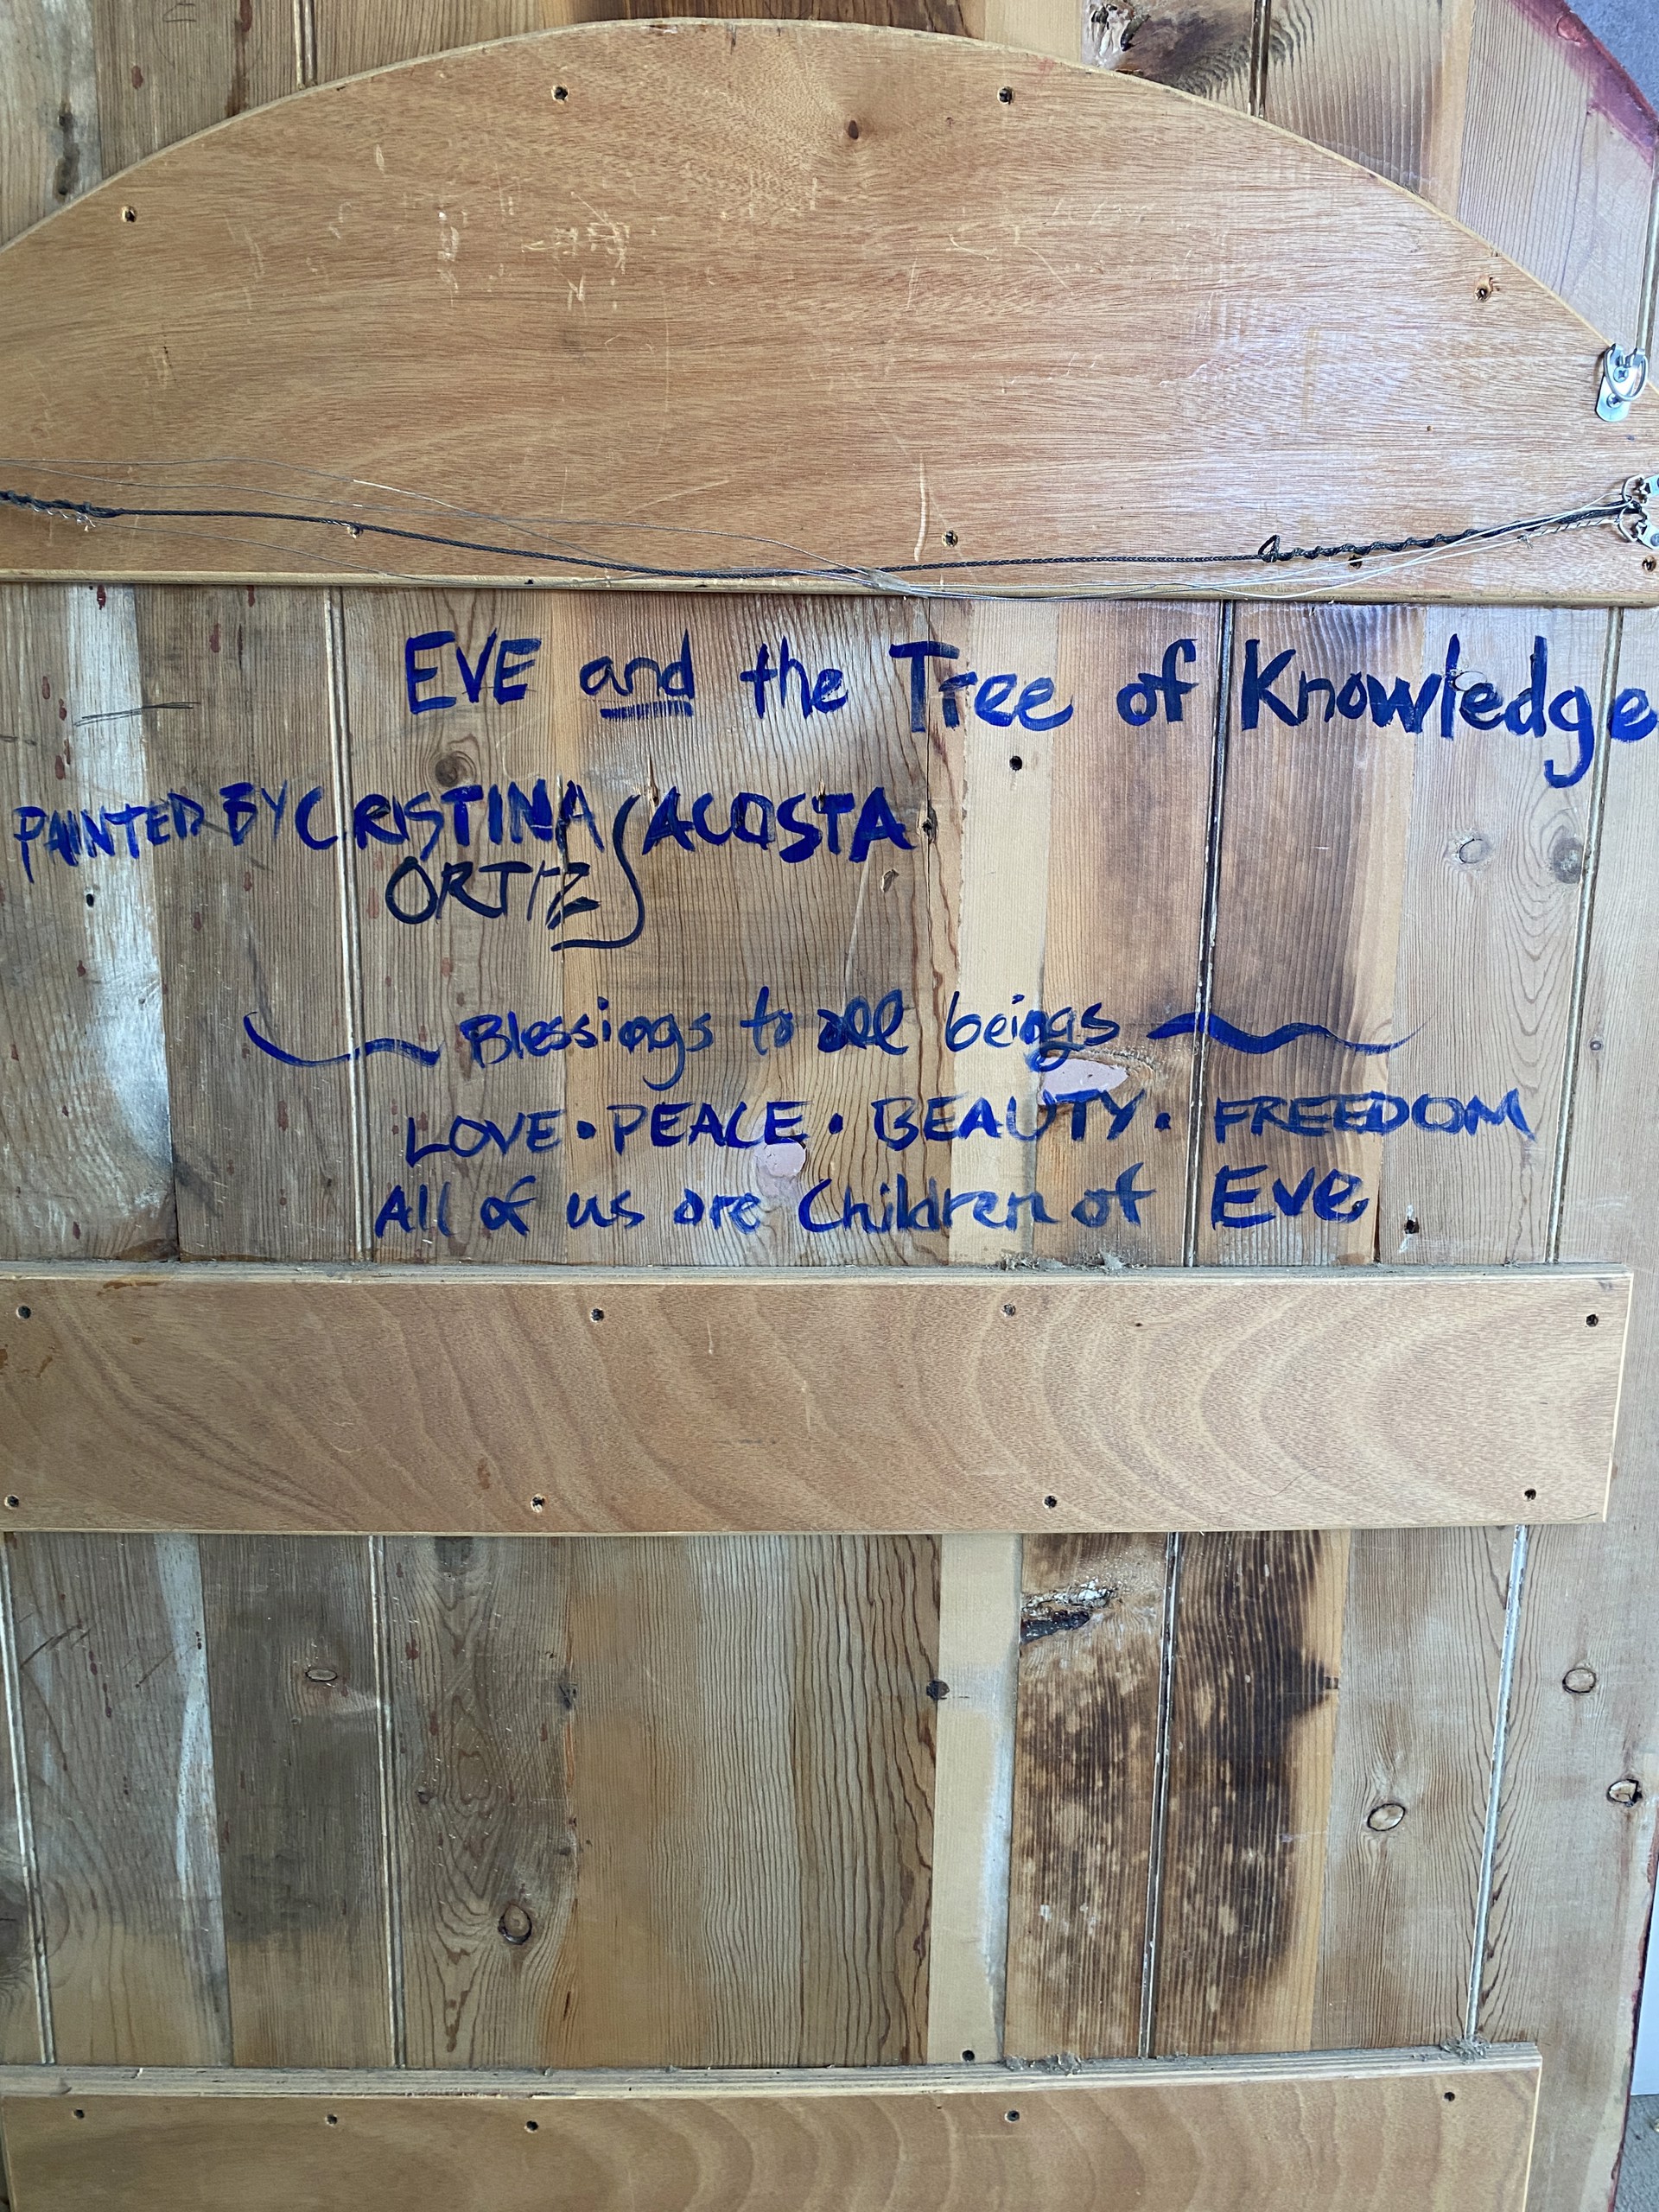 EVE and the Tree of Knowledge
PAINTED BY CRISTINA ACOSTA
ORTIZ
Blessings to all beings
LOVE • PEACE • BEAUTY • FREEDOM
All of us are Children of Eve